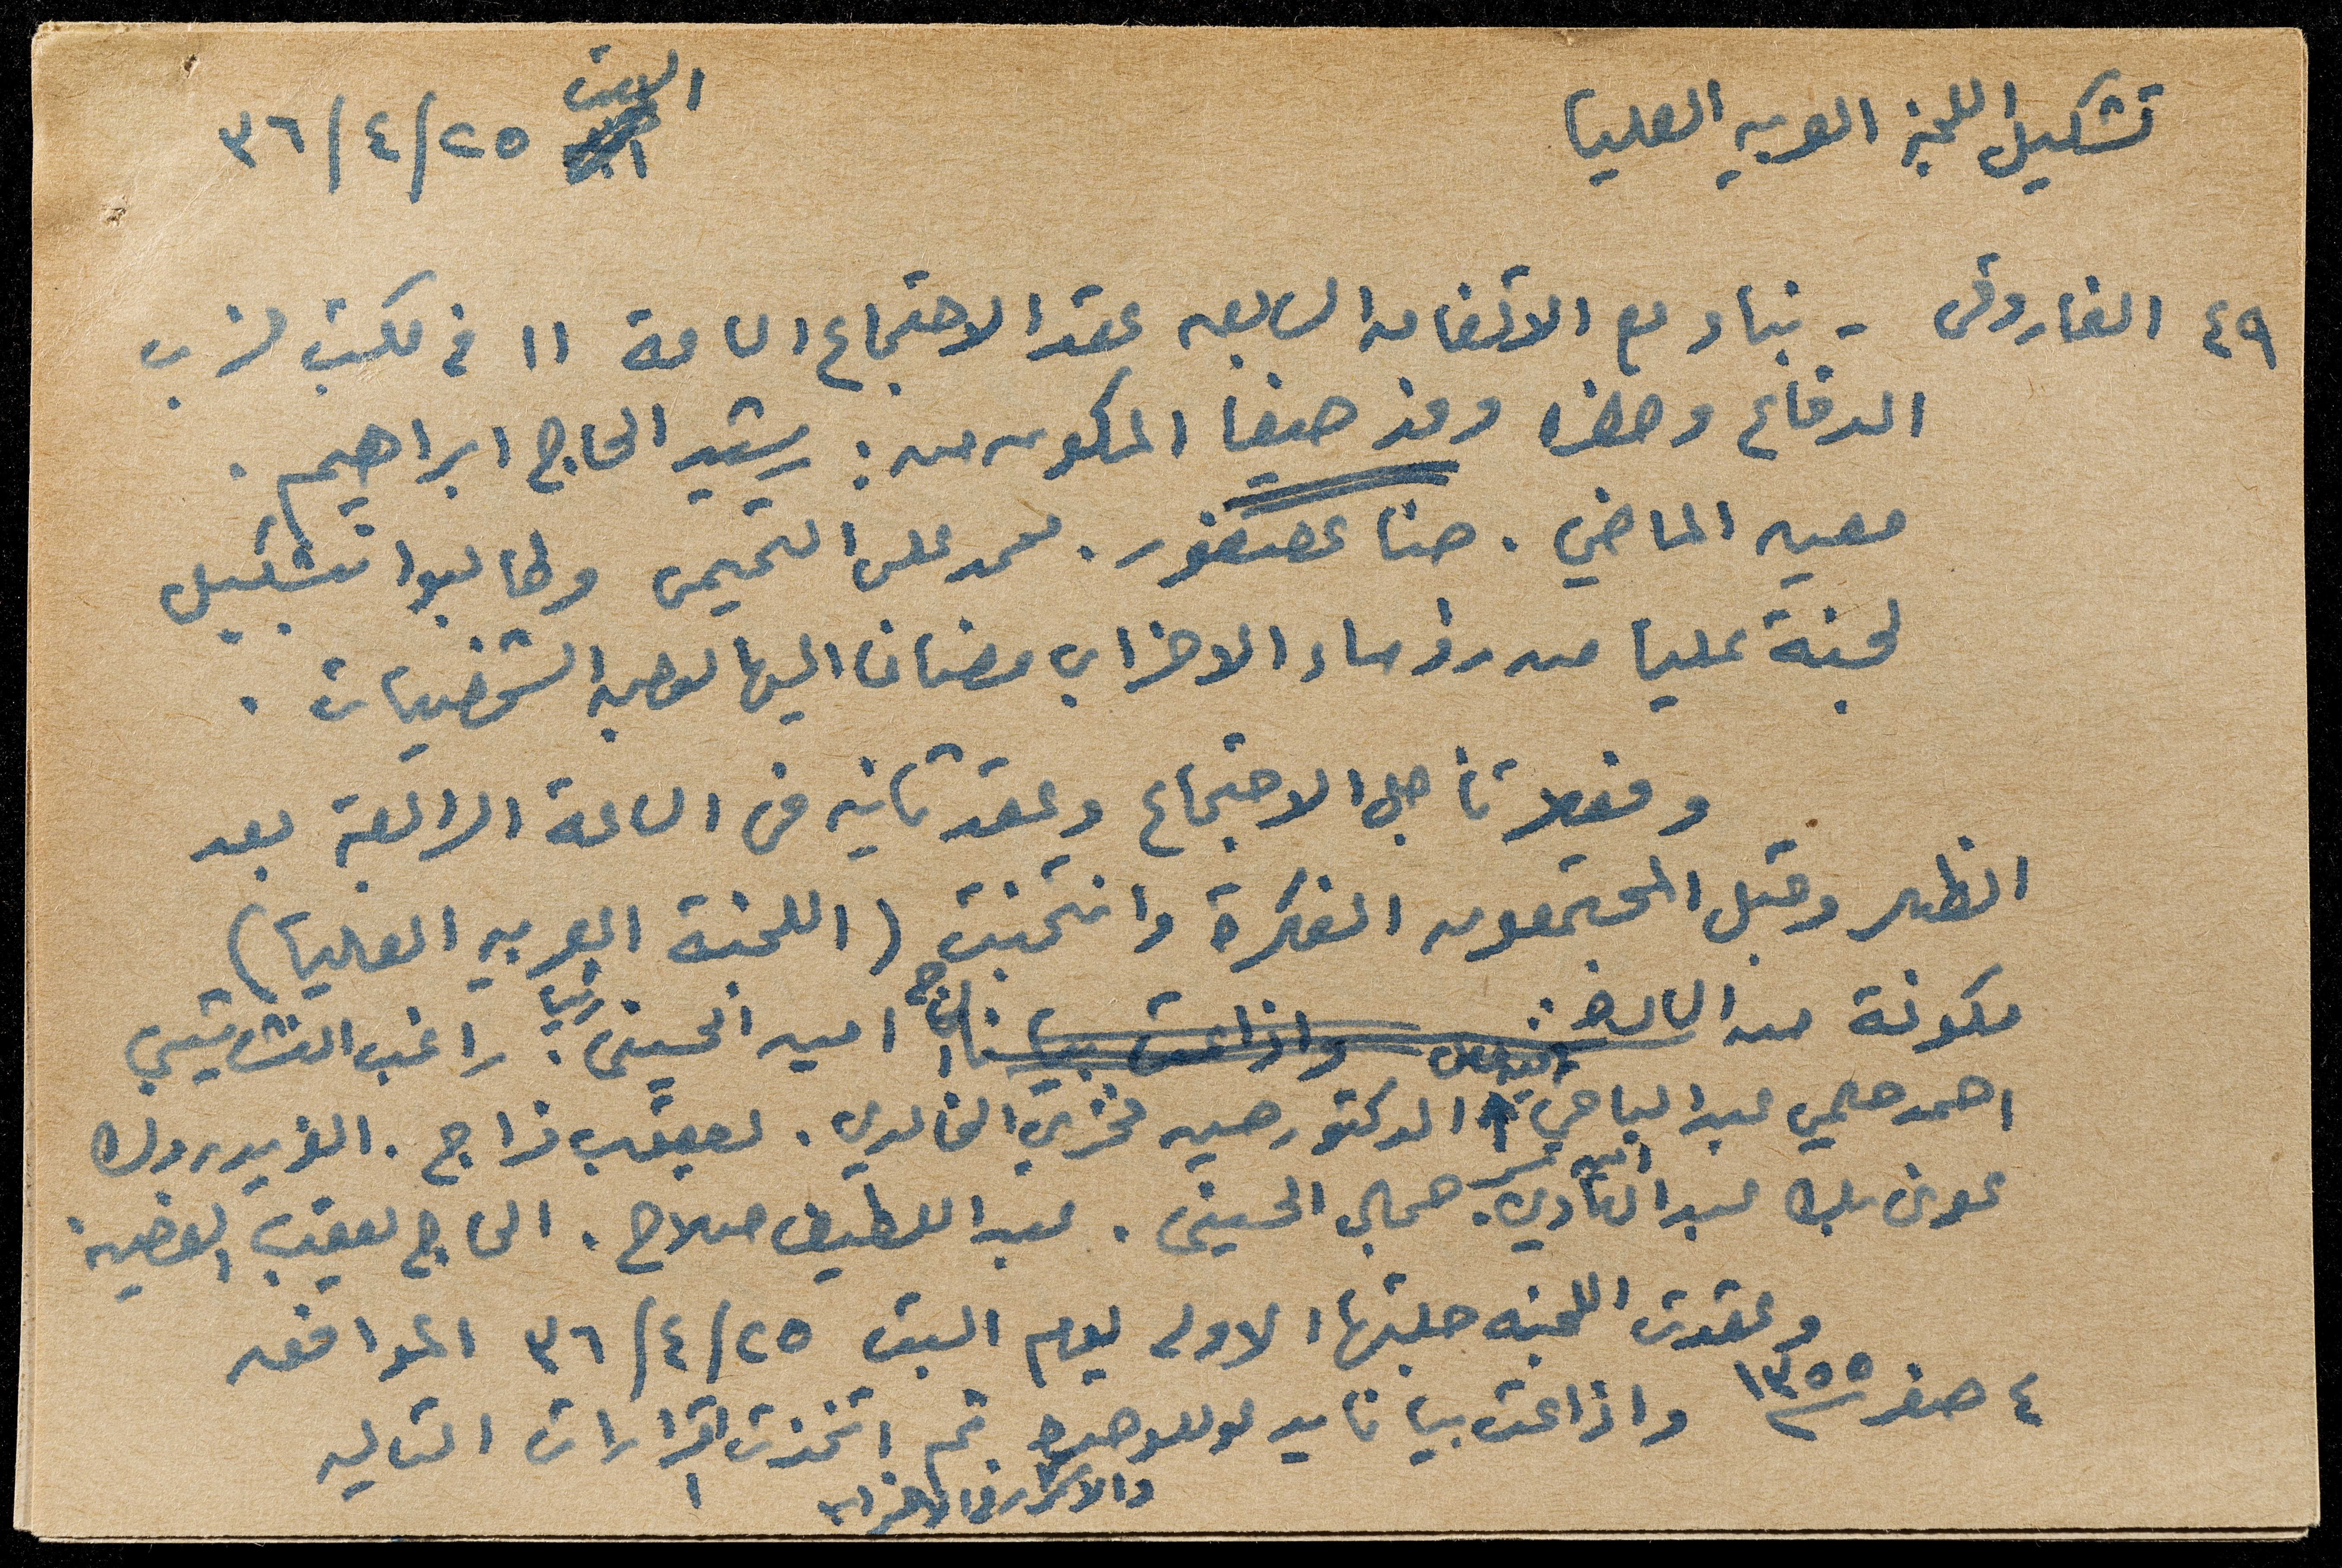 تشكيل اللجنة العربيه العليا
السبت ٢٥/٤/٣٦
٤٩ الفاروقي - بناء مع الاتفاقه السابقه عقد الاجتماع الساعة ١١ في مكتب حزب
الدفاع وحضره وفد حيفا المكون من : رشيد الحاج ابراهيم .
معين الماضي . حنا عصفور . محمد علي التميمي وطالبوا تشكيل
لجنة عليا من رؤساء الاحزاب مضافا اليها بعض الشخصيات .
وفعلا تأجل الاجتماع وعقد ثانيه في الساعة الرابعة بعد
الظهر وقبل المجتمعون الفكرة وانتخبت (اللجنة العربيه العليا)
مكونة من السادة : واذاعت بيانا الحاج امين الحسيني رئيسا . راغب النشاشيبي
احمد حلمي عبد الباقي الدكتور حسين فخري الخالدي . يعقوب فراج . الفريد روك
عوني بك عبد الهادي . امين السر جمال الحسيني . عبد اللطيف صلاح . الحاج يعقوب الغصين
وعقدت اللجنه جلستها الاولى يوم السبت ٢٥/٤/٣٦ الموافق
٤ صفر ١٣٥٥ واذاعت بيانا يدعو للوحدة ثم اتخذت القرارات التاليه
والاستمرار في الاضراب